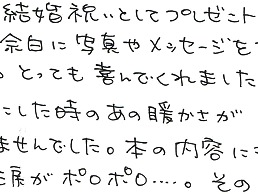 結婚祝いとしてプレゼント
余白に写真やメッセージを
。とっても喜んでくれました
にした時のあの暖かさが
ませんでした。本の内容に
涙がポロポロ…。その